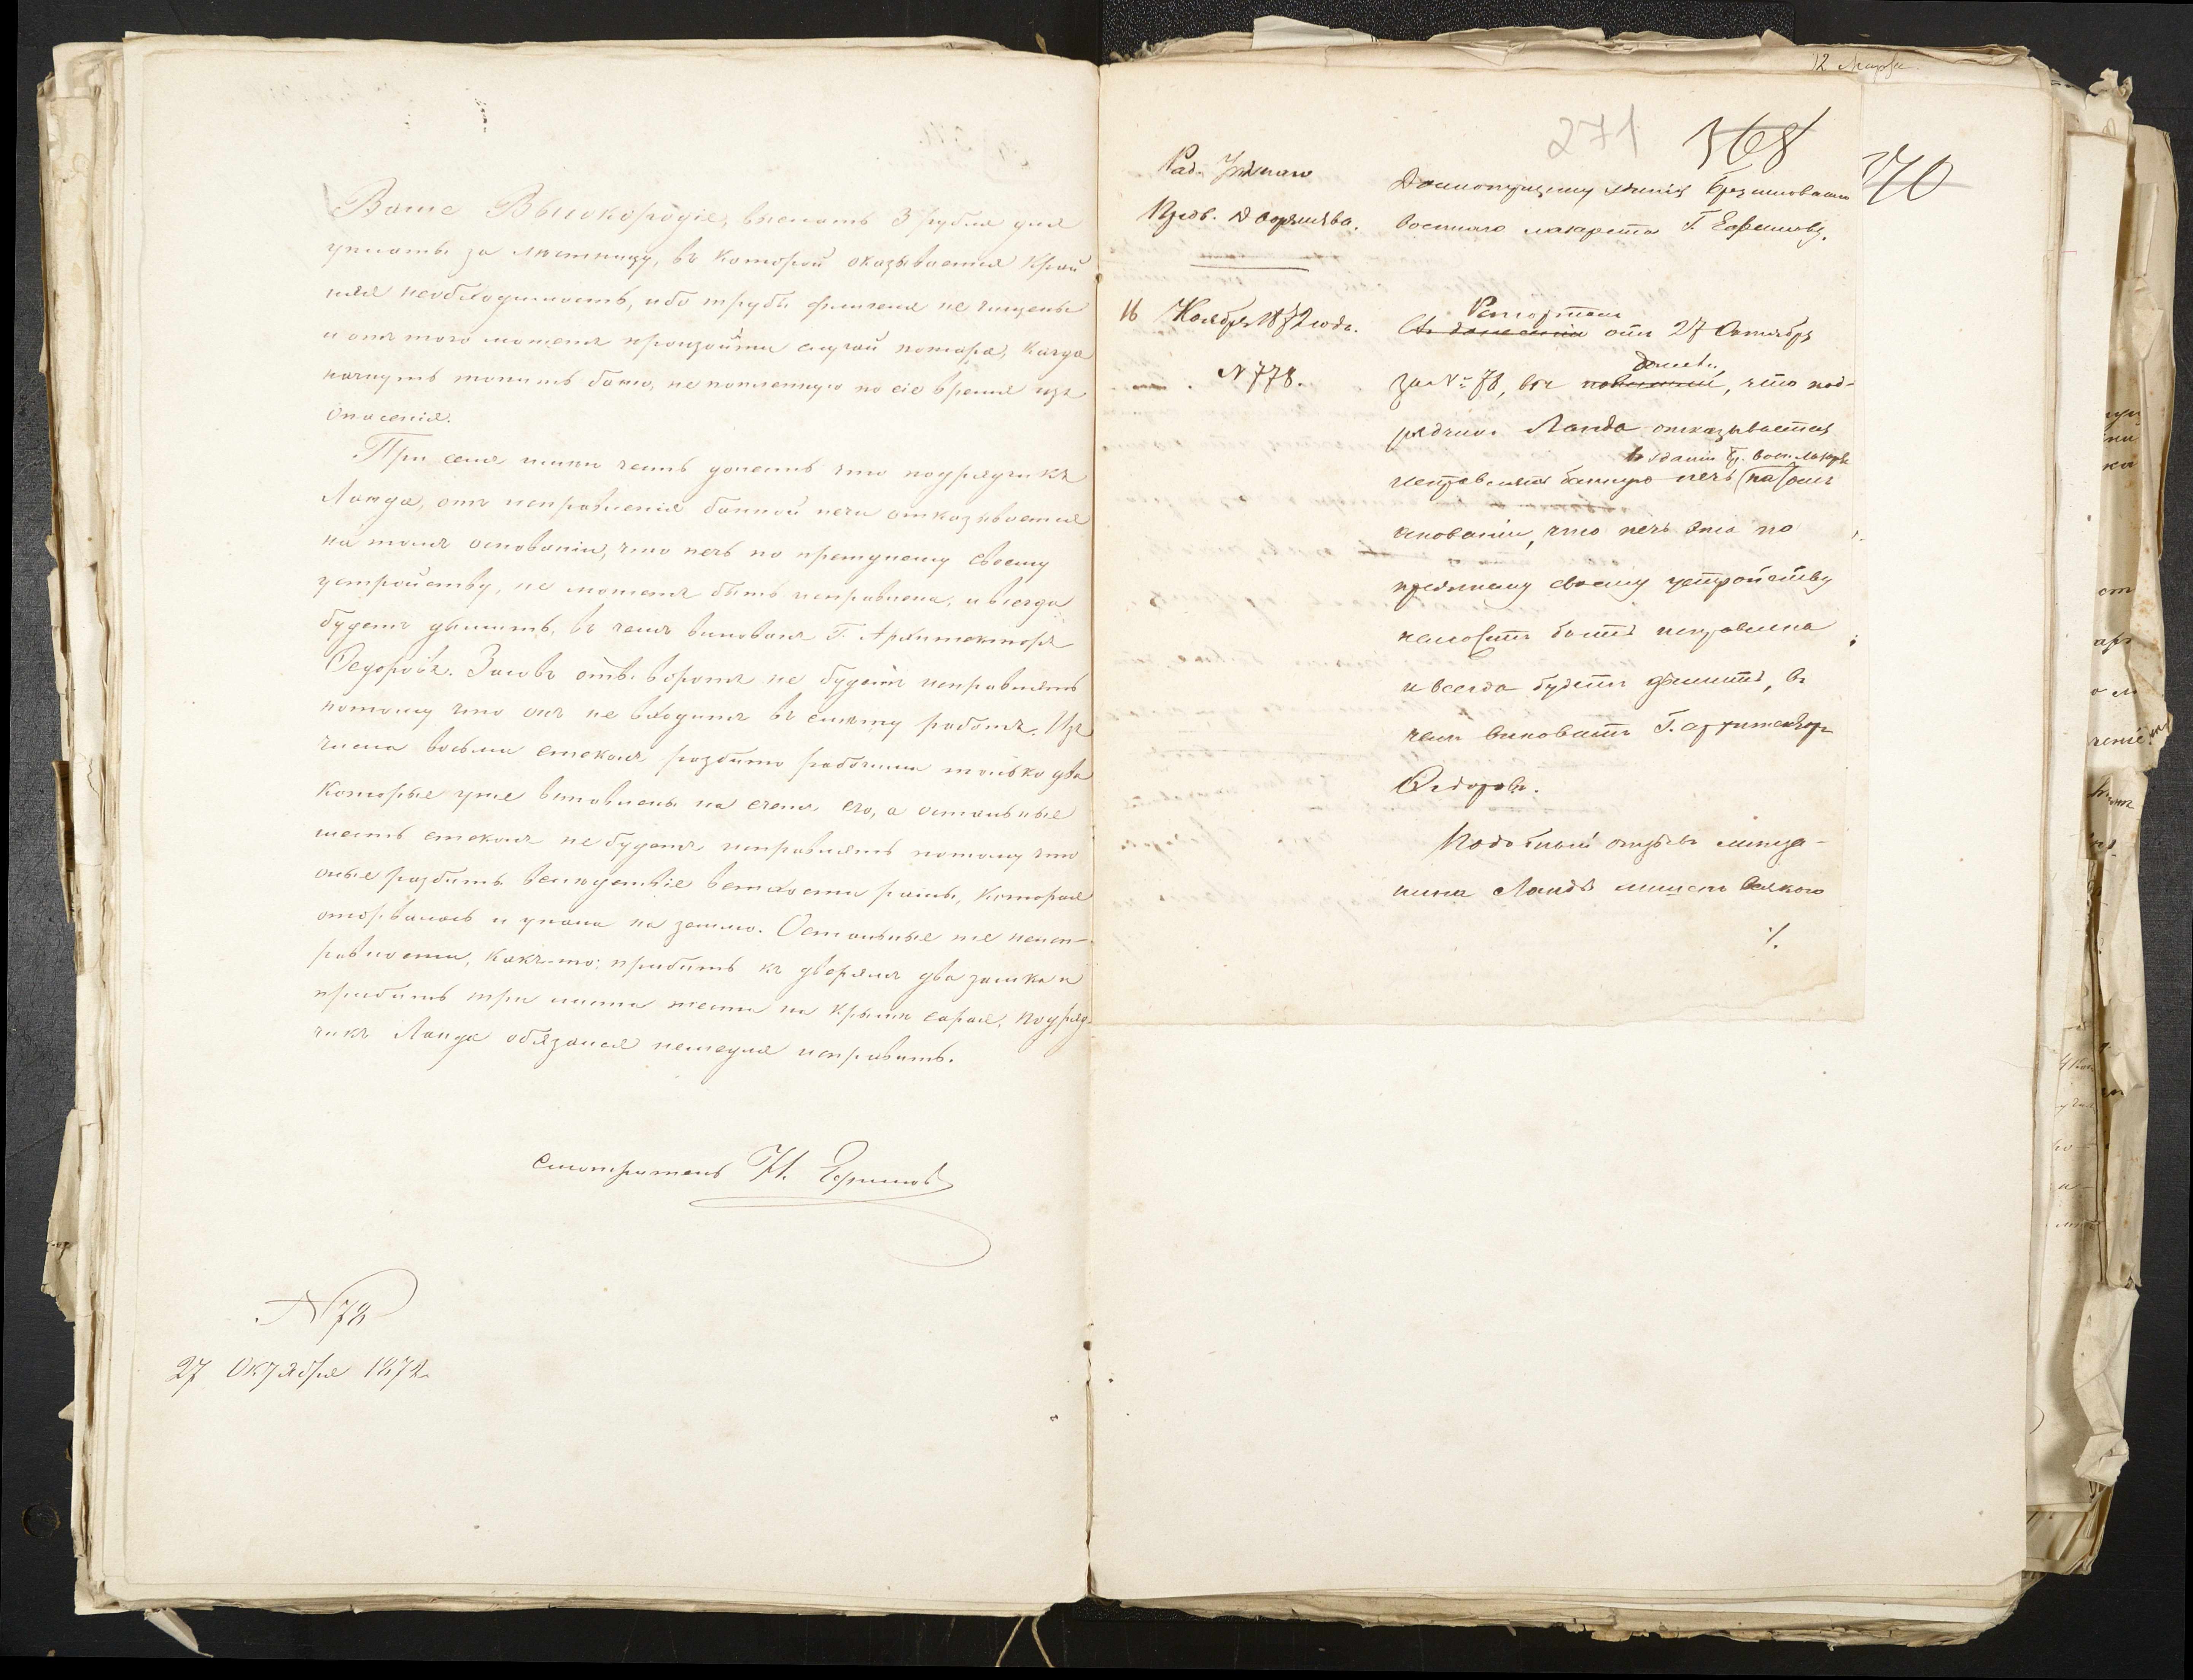 Ваше Высокородіе, выслать 3 рубля для
уплаты за лѣстницу, въ которой оказывается край
няя необходимость, ибо трубы флигеля не чищены
и отъ того можетъ произойти случай пожара, когда
начнутъ топить баню, не топленную по сіе время изъ
опасенія.
При семъ имѣю честь донесть что подрядчикъ
Ланда, отъ исправленія банной печи отказывается
на томъ основаніи, что печь по прежнему своему
устройству, не можетъ быть исправлена, и всегда
будетъ дымить, въ чемъ виноватъ Г. Архитекторъ
Федоровъ. Засовъ отъ воротъ не будетъ исправлять
потому что онъ не входитъ въ смѣту работъ. Изъ
числа восьми стеколъ разбито рабочими только два
которые уже вставлены на счетъ его, а остальные
шесть стеколъ не будетъ исправлять потому что
оные разбиты вслѣдствіе ветхости рамы, которая
оторвалась и упала на землю. Остальные же неис-
равности, какъ-то: прибить къ дверямъ два замка и
прибить три листа жести на крышѣ сарая, подряд-
чикъ Ланда обязался немедля исправить.
Смотритель Н. Ефимов
N 78
27 Октября 1872
12 Марта
271 368
270
Пред. Дворянства.
Г. Ефимову.
военнаго лазарета
16 Ноября 1872 года.
N 778.
Рапортомъ
отъ 27 Октября
донесли
за № 78, Вы, что под-
рядчикъ Ланда отказывается
въ зданіи Бр. воен. лазар.
исправлять банную печь на томъ
основаніи, что печь эта по
прежнему своему устройству
неможетъ быть исправлена
и всегда будетъ дымить, въ
чемъ виноватъ Г. архитекторъ
Федоровъ.
Подобный отзывъ мѣща-
нина Ланды лишенъ всякого
./.